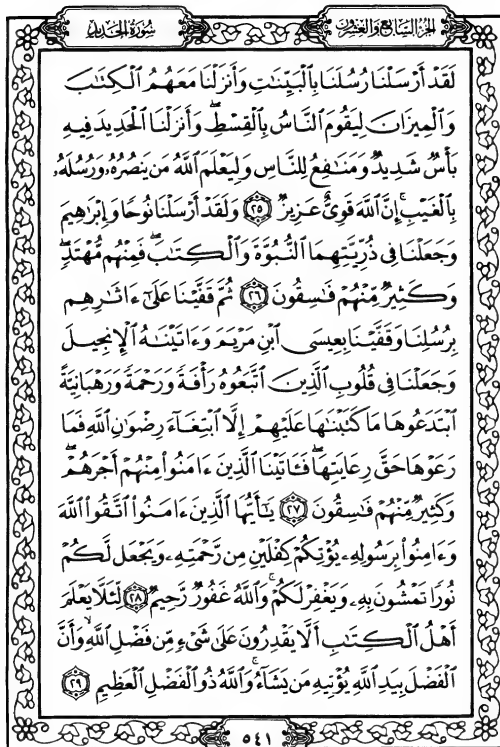 سُورَةُ الحَدِيد
الجُزْءُ السَّابِعُ وَالعِشْرُونَ
لَقَدْ أَرْسَلْنَا رُسُلَنَا بِالْبَيِّنَاتِ وَأَنزَلْنَا مَعَهُمُ الْكِتَابَ
وَالْمِيزَانَ لِيَقُومَ النَّاسُ بِالْقِسْطِ ۖ وَأَنزَلْنَا الْحَدِيدَ فِيهِ
بَأْسٌ شَدِيدٌ وَمَنَافِعُ لِلنَّاسِ وَلِيَعْلَمَ اللَّهُ مَن يَنصُرُهُ وَرُسُلَهُ
بِالْغَيْبِ ۚ إِنَّ اللَّهَ قَوِيٌّ عَزِيزٌ ٢٥ وَلَقَدْ أَرْسَلْنَا نُوحًا وَإِبْرَاهِيمَ
وَجَعَلْنَا فِي ذُرِّيَّتِهِمَا النُّبُوَّةَ وَالْكِتَابَ ۖ فَمِنْهُم مُّهْتَدٍ ۖ
وَكَثِيرٌ مِّنْهُمْ فَاسِقُونَ ٢٦ ثُمَّ قَفَّيْنَا عَلَىٰ ءَاثَارِهِم
بِرُسُلِنَا وَقَفَّيْنَا بِعِيسَى ابْنِ مَرْيَمَ وَءَاتَيْنَاهُ الْإِنجِيلَ
وَجَعَلْنَا فِي قُلُوبِ الَّذِينَ اتَّبَعُوهُ رَأْفَةً وَرَحْمَةً وَرَهْبَانِيَّةً
ابْتَدَعُوهَا مَا كَتَبْنَاهَا عَلَيْهِمْ إِلَّا ابْتِغَاءَ رِضْوَانِ اللَّهِ فَمَا
رَعَوْهَا حَقَّ رِعَايَتِهَا ۖ فَـَٔاتَيْنَا الَّذِينَ ءَامَنُوا مِنْهُمْ أَجْرَهُمْ ۖ
وَكَثِيرٌ مِّنْهُمْ فَاسِقُونَ ٢٧ يَـٰٓأَيُّهَا الَّذِينَ ءَامَنُوا اتَّقُوا اللَّهَ
وَءَامِنُوا بِرَسُولِهِ يُؤْتِكُمْ كِفْلَيْنِ مِن رَّحْمَتِهِ وَيَجْعَل لَّكُمْ
نُورًا تَمْشُونَ بِهِ وَيَغْفِرْ لَكُمْ ۚ وَاللَّهُ غَفُورٌ رَّحِيمٌ ٢٨ لِّئَلَّا يَعْلَمَ
أَهْلُ الْكِتَابِ أَلَّا يَقْدِرُونَ عَلَىٰ شَيْءٍ مِّن فَضْلِ اللَّهِ ۙ وَأَنَّ
الْفَضْلَ بِيَدِ اللَّهِ يُؤْتِيهِ مَن يَشَاءُ ۚ وَاللَّهُ ذُو الْفَضْلِ الْعَظِيمِ ٢٩
٥٤١